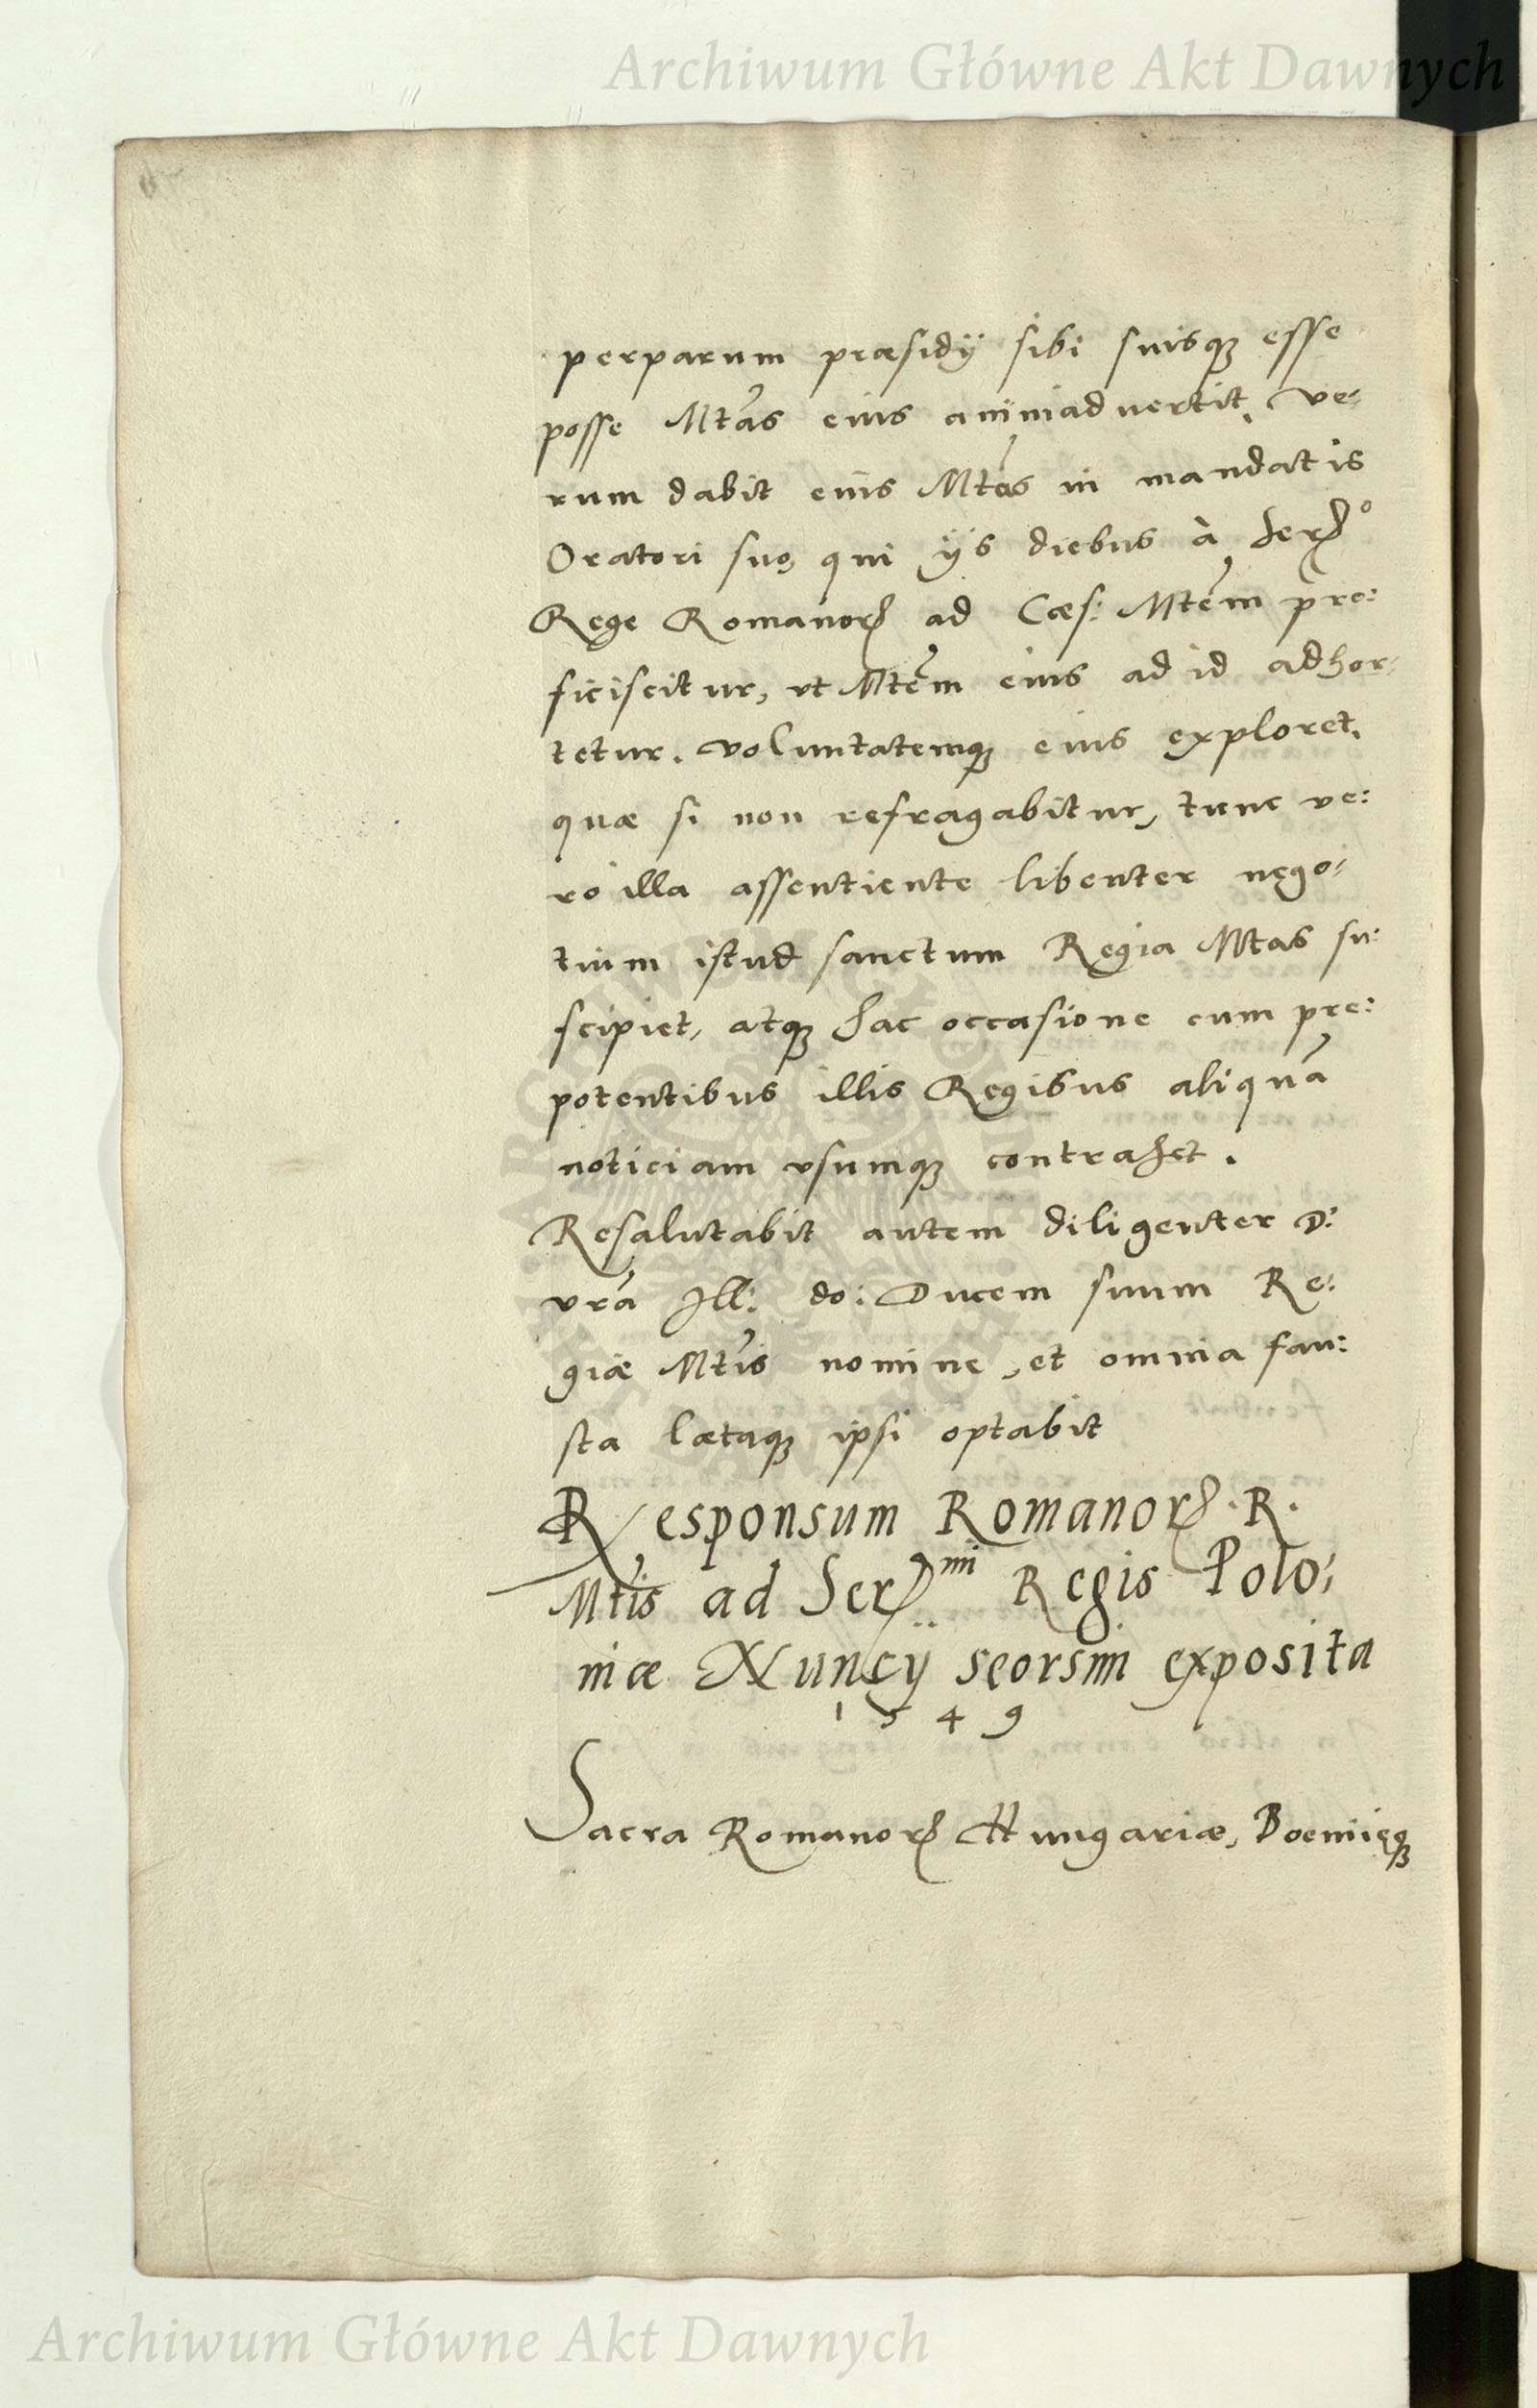 Archiwum Główne Akt Dawnych
perparum præsidÿ sibi suisqꝫ esse
posse Mtãs eius animaduertit. Ve-
rum dabit eius Mtãs in mandatis
Oratori suo, qui ÿs diebus à Serᵐᵒ
Rege Romanorꝝ ad Cæs: Mtẽm pro:
ficiscitur, vt Mtẽm eius ad id adhor-
tetur. voluntatemqꝫ eius exploret.
quæ si non refragabitur, tunc ve:
ro illa assentiente libenter nego-
tium istud sanctum Regia Mtas su:
scipiet, atqꝫ hac occasione cum pre:
potentibus illis Regibus aliquã
noticiam vsumqꝫ contrahet.
Resalutabit autem diligenter D:
vrã Ill: do: Ducem suum Re:
giæ Mtis nomine, et omnia fau:
sta lætaqꝫ ipsi optabit
Responsum Romanorꝝ. R.
Mtis ad Serᵐⁱ Regis Polo:
niæ Nuncÿ seorsim exposita
1549
Sacra Romanorꝝ Hungariæ, Boemięqꝫ
Archiwum Główne Akt Dawnych